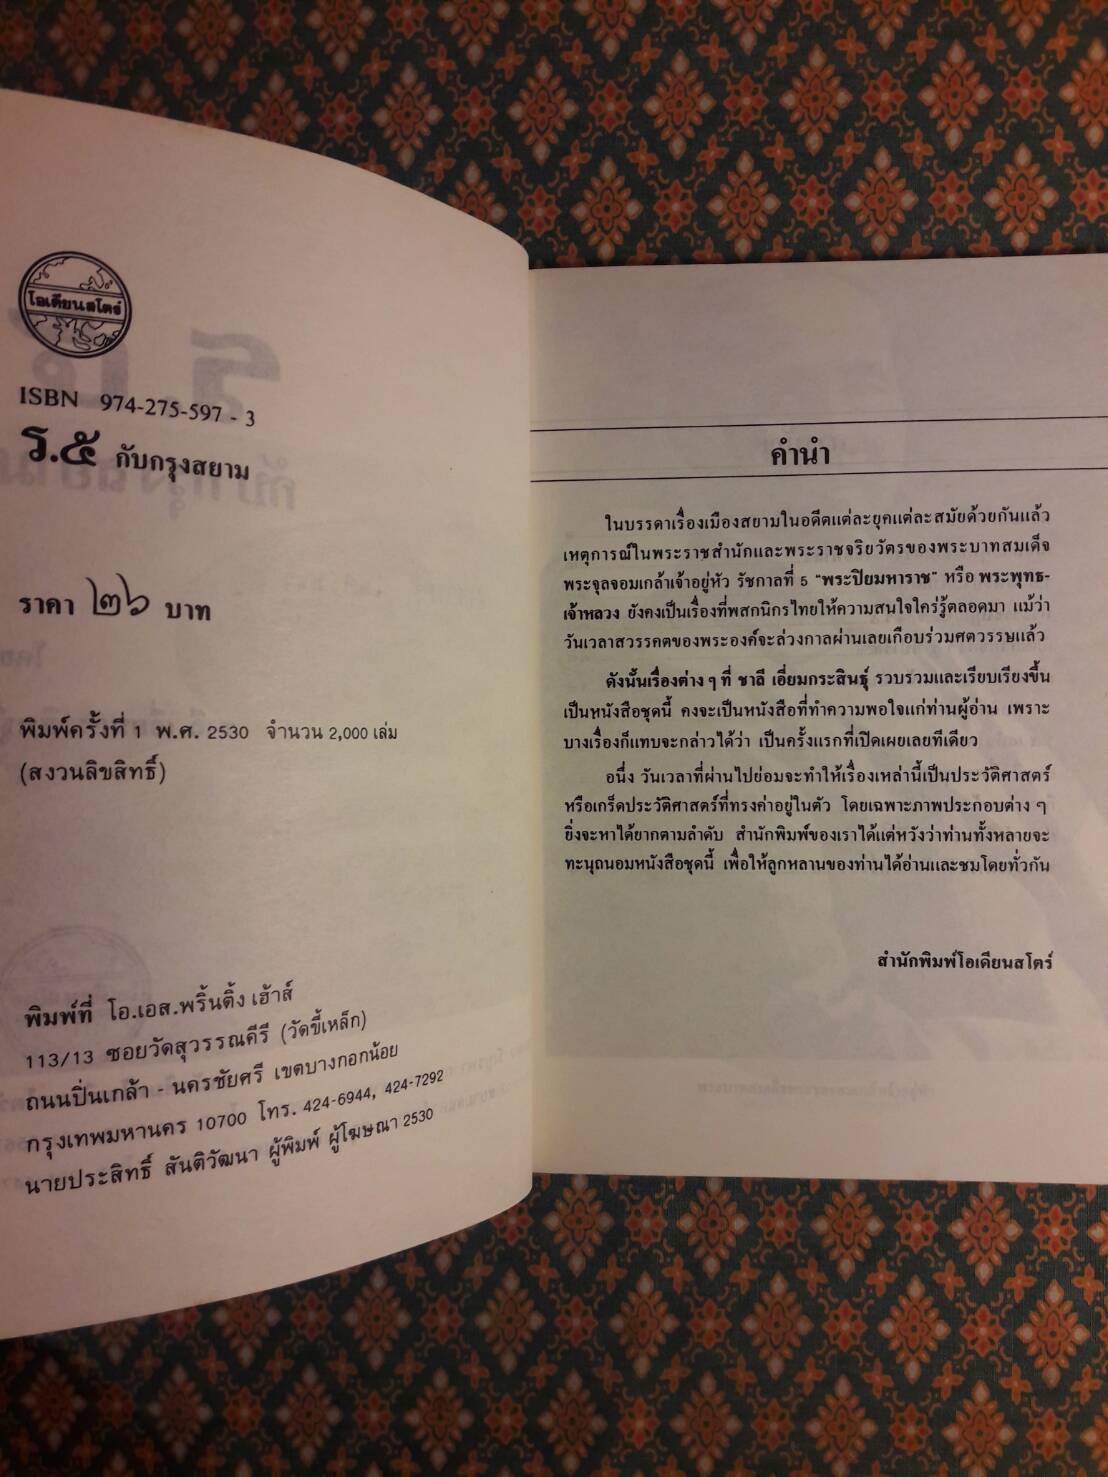 โอเดียนสโตร์
ISBN 974-275-597 - 3
ร.๕ กับกรุงสยาม
ราคา ๒๖ บาท
พิมพ์ครั้งที่ 1 พ.ศ. 2530 จำนวน 2,000 เล่ม
(สงวนลิขสิทธิ์)
พิมพ์ที่ โอ.เอส.พริ้นติ้ง เฮ้าส์
113/13 ซอยวัดสุวรรณคีรี (วัดขี้เหล็ก)
ถนนปิ่นเกล้า - นครชัยศรี เขตบางกอกน้อย
กรุงเทพมหานคร 10700 โทร. 424-6944, 424-7292
นายประสิทธิ์ สันติวัฒนา ผู้พิมพ์ ผู้โฆษณา 2530
คำนำ
ในบรรดาเรื่องเมืองสยามในอดีตแต่ละยุคแต่ละสมัยด้วยกันแล้ว
เหตุการณ์ในพระราชสำนักและพระราชจริยวัตรของพระบาทสมเด็จ
พระจุลจอมเกล้าเจ้าอยู่หัว รัชกาลที่ 5 "พระปิยมหาราช" หรือ พระพุทธ-
เจ้าหลวง ยังคงเป็นเรื่องที่พสกนิกรไทยให้ความสนใจใคร่รู้ตลอดมา แม้ว่า
วันเวลาสวรรคตของพระองค์จะล่วงกาลผ่านเลยเกือบร่วมศตวรรษแล้ว
ดังนั้นเรื่องต่าง ๆ ที่ ชาลี เอี่ยมกระสินธุ์ รวบรวมและเรียบเรียงขึ้น
เป็นหนังสือชุดนี้ คงจะเป็นหนังสือที่ทำความพอใจแก่ท่านผู้อ่าน เพราะ
บางเรื่องก็แทบจะกล่าวได้ว่า เป็นครั้งแรกที่เปิดเผยเลยทีเดียว
อนึ่ง วันเวลาที่ผ่านไปย่อมจะทำให้เรื่องเหล่านี้เป็นประวัติศาสตร์
หรือเกร็ดประวัติศาสตร์ที่ทรงค่าอยู่ในตัว โดยเฉพาะภาพประกอบต่าง ๆ
ยิ่งจะหาได้ยากตามลำดับ สำนักพิมพ์ของเราได้แต่หวังว่าท่านทั้งหลายจะ
ทะนุถนอมหนังสือชุดนี้ เพื่อให้ลูกหลานของท่านได้อ่านและชมโดยทั่วกัน
สำนักพิมพ์โอเดียนสโตร์